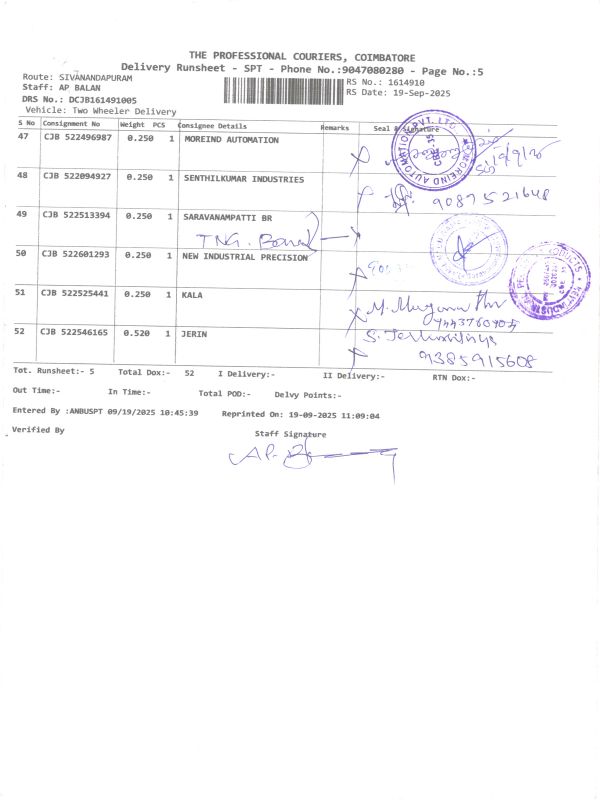 THE PROFESSIONAL COURIERS, COIMBATORE
Delivery Runsheet - SPT - Phone No.:9047080280 - Page No.:5
Route: SIVANANDAPURAM
RS No.: 1614910
Staff: AP BALAN
RS Date: 19-Sep-2025
DRS No.: DCJB161491005
Vehicle: Two Wheeler Delivery
S No Consignment No Weight PCS Consignee Details Remarks Seal & Signature
47 CJB 522496987 0.250 1 MOREIND AUTOMATION
48 CJB 522094927 0.250 1 SENTHILKUMAR INDUSTRIES
9087521648
49 CJB 522513394 0.250 1 SARAVANAMPATTI BR
50 CJB 522601293 0.250 1 NEW INDUSTRIAL PRECISION
51 CJB 522525441 0.250 1 KALA
52 CJB 522546165 0.520 1 JERIN
9385915608
Tot. Runsheet:- 5 Total Dox:- 52 I Delivery:- II Delivery:- RTN Dox:-
Out Time:- In Time:- Total POD:- Delvy Points:-
Entered By :ANBUSPT 09/19/2025 10:45:39 Reprinted On: 19-09-2025 11:09:04
Verified By Staff Signature